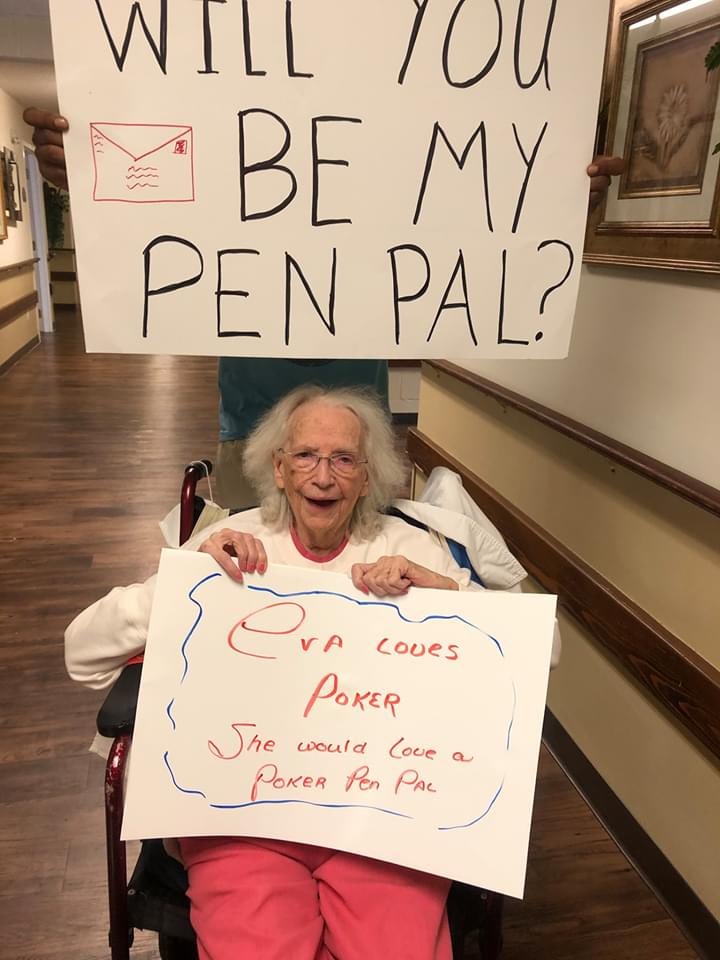 WILL YOU
BE MY
PEN PAL?
EVA LOVES
POKER
She would Love a
POKER Pen PAL